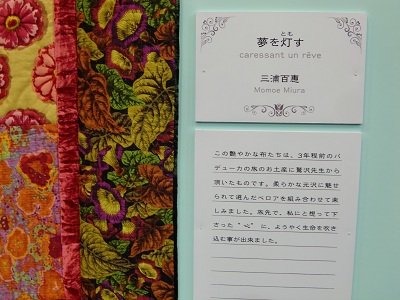 とも
夢を灯す
caressant un rêve
三浦百惠
Momoe Miura
この艶やかな布たちは、3年程前のパ
デューカの旅のお土産に鷲沢先生から
頂いたものです。柔らかな光沢に魅せ
られて選んだベロアを組み合わせて楽
しみました。旅先で、私にと想って下
さった“心”に、ようやく生命を吹き
込む事が出来ました。